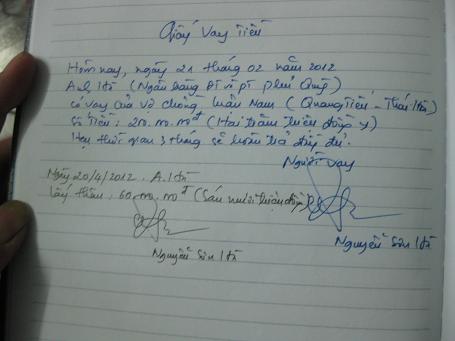 Giấy vay tiền
Hôm nay, ngày 21 tháng 02 năm 2012
Anh Hà (Ngân hàng ĐT và PT Phủ Quỳ)
có vay của vợ chồng Luân Nam (Quang Tiến - Thái Hà)
số tiền: 200.000.000đ (Hai trăm triệu đồng)
Hẹn thời gian 3 tháng sẽ hoàn trả đầy đủ.
Người vay
Ngày 20/4/2012, A. Hà
lấy thêm: 60.000.000đ (Sáu mươi triệu đồng)
Nguyễn Sơn Hà
Nguyễn Sơn Hà